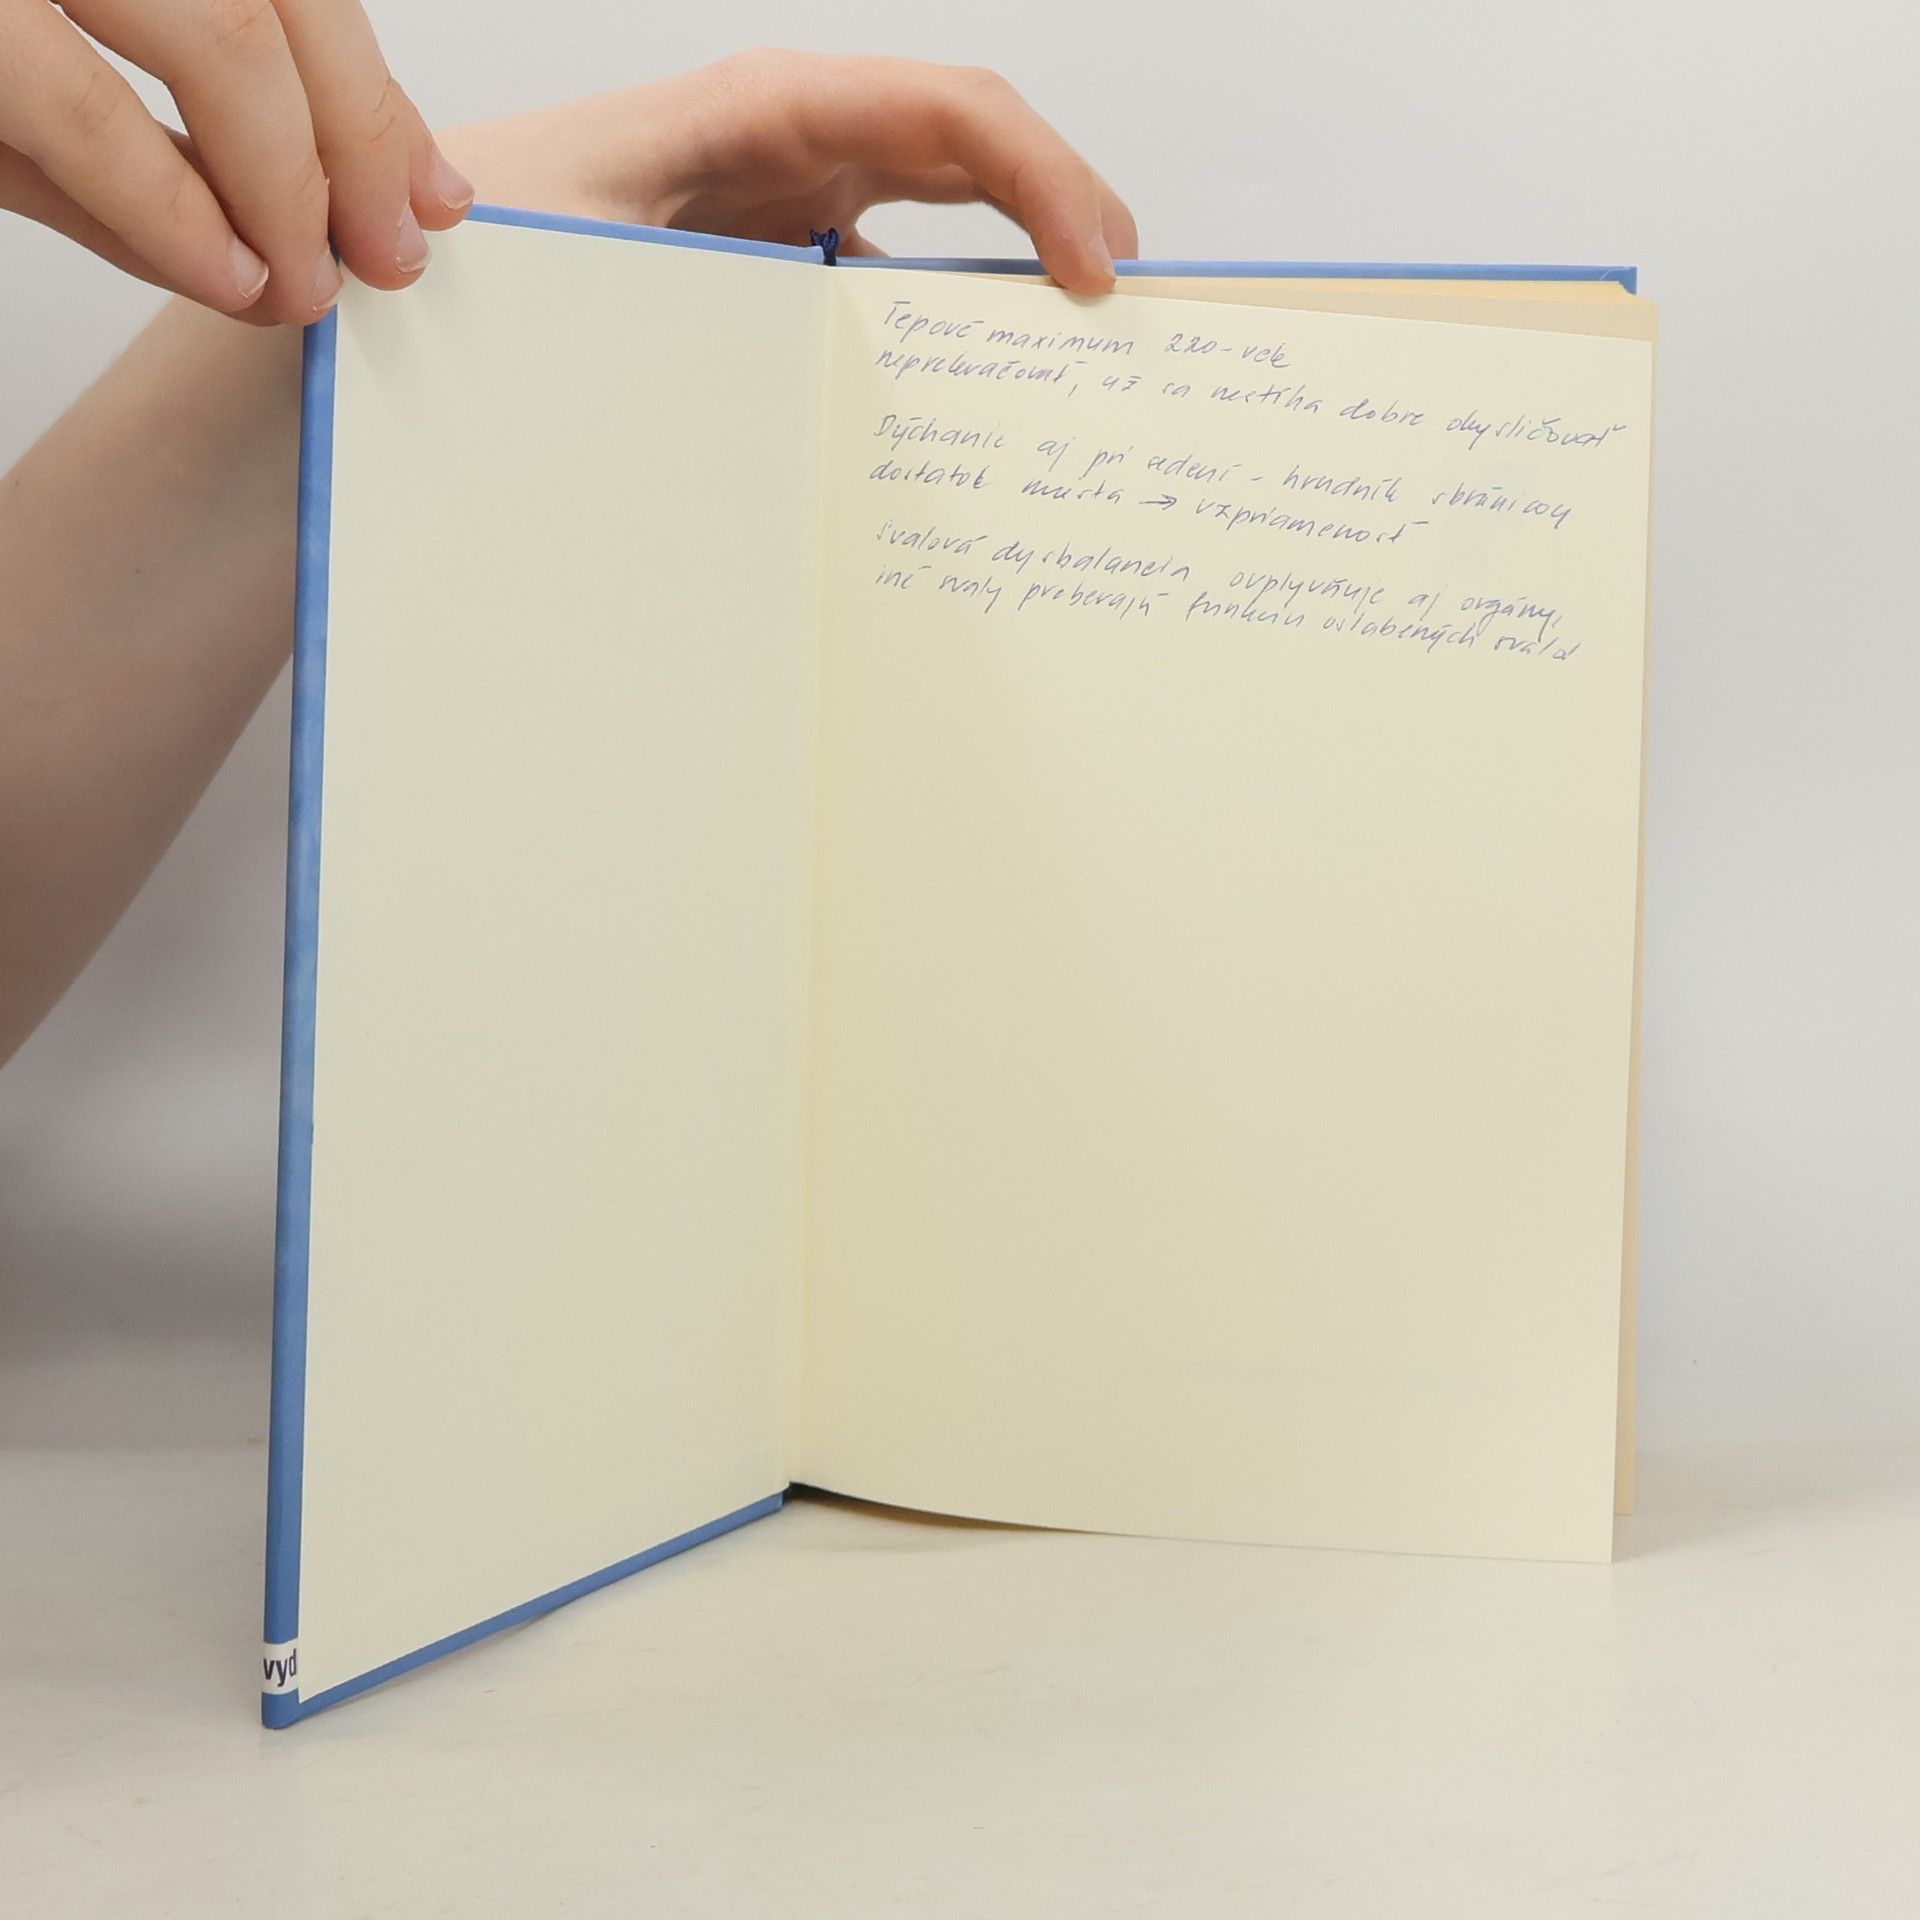 Tepové maximum 220-vek
neprekračovať, už sa nestíha dobre okysličovať
Dýchanie aj pri sedení - hrudník s bránicou
dostatok miesta → vzpriamenosť
Svalová dysbalancia ovplyvňuje aj orgány,
iné svaly preberajú funkciu oslabených svalov
vyd